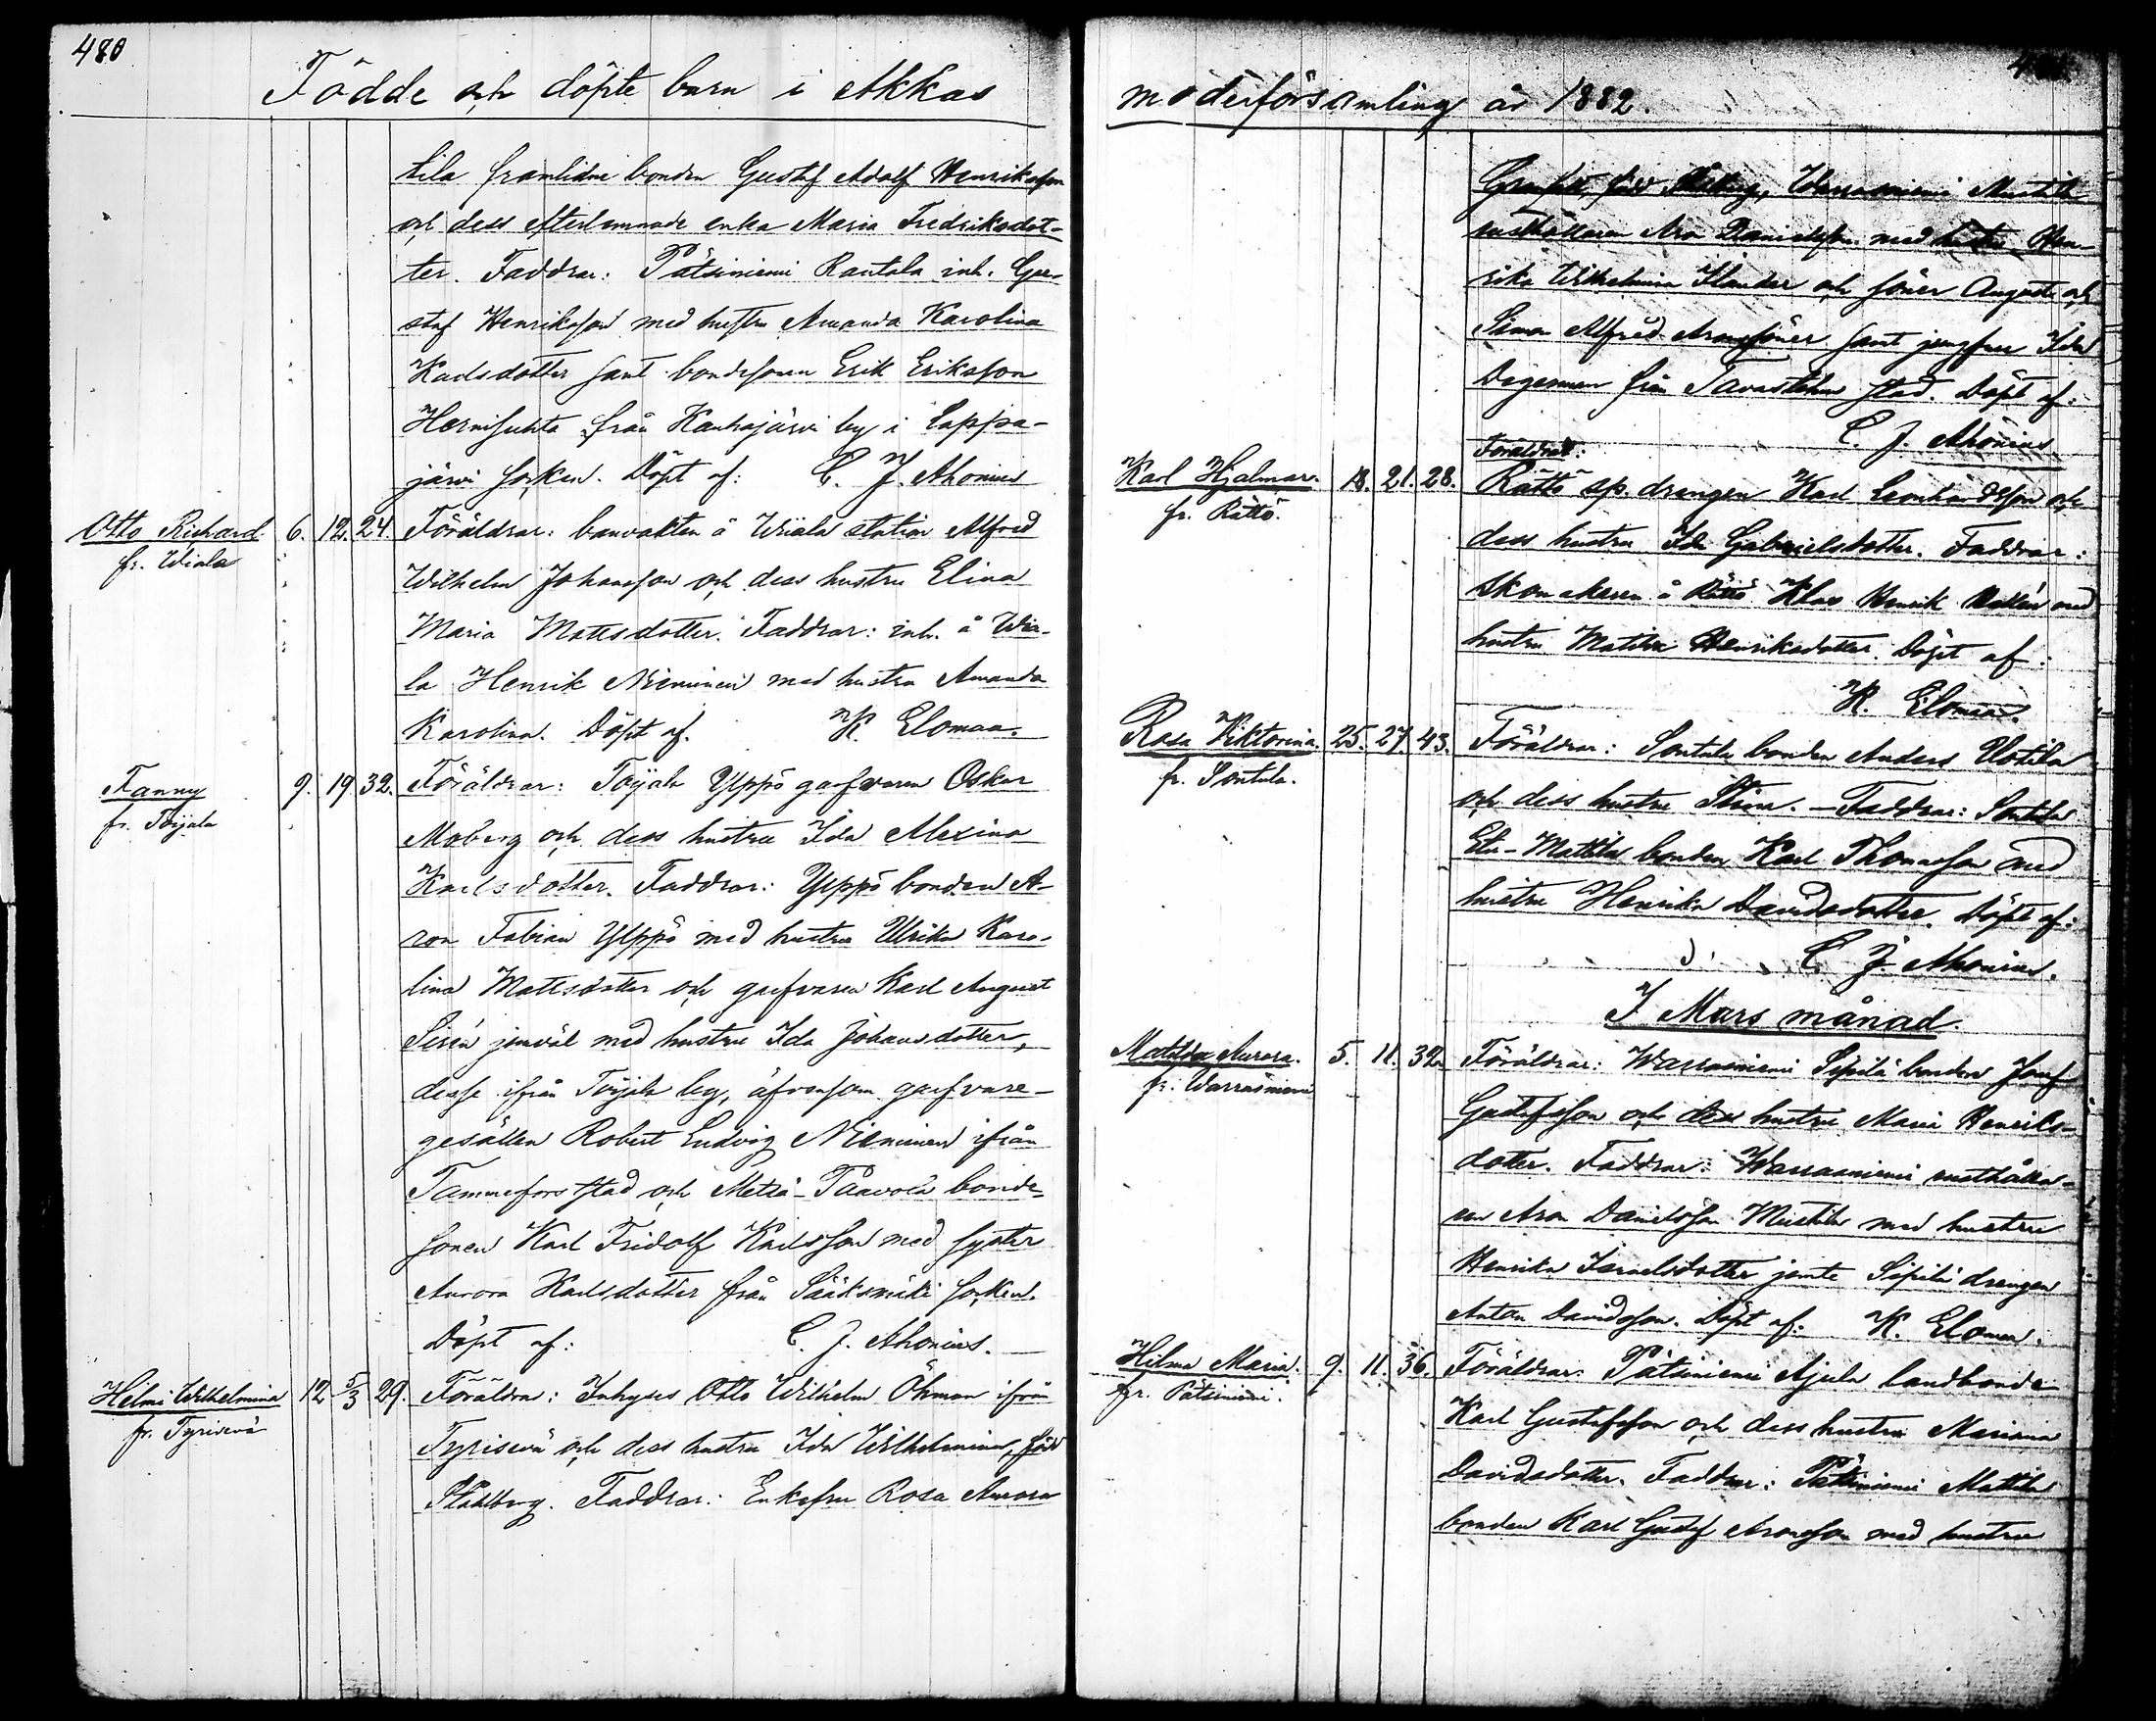 480
Födde och döpte barn i Akkas
tila framlidne bonden Gustaf Adolf Henriksson
och dess efterlemnade enka Maria Fredriksdot-
ter. Faddrar: Pätsiniemi Rantala inh. Gu-
staf Henriksson med hustru Amanda Karolina
Karlsdotter samt bondesonen Erik Eriksson
från Kauhajärvi by i Lappa-
järvi socken. Döpt af: C. J. Ahonius
Otto Richard 6. 12. 24. Föräldrar: banvakten å Wiiala station Alfred
fr. Wiala
Wilhelm Johansson och dess hustru Elina
Maria Mattsdotter. Faddrar: inh. å Wia-
la Henrik Nieminen med hustru Amanda
Karolina. Döpt af. K. Elomaa.
Fanny 9. 19. 32. Föräldrar: Toijala Ylppö garfvaren Oskar
fr. Toijala
Moberg och dess hustru Ida Alexina
Karlsdotter. Faddrar: Ylppö bonden A-
ron Fabian Ylppö med hustru Ulrika Karo-
lina Mattsdotter och garfvaren Karl August
Sirén jemväl med hustru Ida Johansdotter,
desse ifrån Toijala by, äfvensom garfvare-
gesällen Robert Ludvig Nieminen ifrån
Tammerfors stad och Metsä-Paavola bonde-
sonen Karl Fridolf Karlsson med syster
Aurora Karlsdotter från Sääksmäki socken.
Döpt af: C. J. Ahonius.
Helmi Wilhelmina 12. 5/3 29. Föräldra: Inhyses Otto Wilhelm Öhman ifrån
fr. Tyrisevä
Tyrisevä och dess hustru Ida Wilhelmina, född
Ståhlberg. Faddrar: Enkefru Rosa Aurora
moderförsamling år 1882.
född Warrasniemi Mustila
rusthållaren Aron Danielsson med hustru Hen-
rika Wilhelmina Ilander och söner August och
Simon Alfred Aronssöner samt jungfru Ida
Degerman från Tavastehus stad. Döpt af:
C. J. Ahonius
Karl Hjalmar. 18. 21. 28. Föräldrar: Rättö sp. drengen Karl Leonhardsson och
fr. Rättö.
dess hustru Ida Gabrielsdotter. Faddrar:
Skomakaren å Rättö Klas Henrik med
hustru Matilda Henriksdotter. Döpt af:
K. Elomaa.
Rosa Viktorina. 25. 27. 43. Föräldrar: Sontula bonden Anders Uotila
fr. Sontula.
och dess hustru Stina. – Faddrar: Sontula
Etu-Mattila bonden Karl Thomasson med
hustru Henrika Davidsdotter. Döpt af:
C. J. Ahonius.
I Mars månad.
Matilda Aurora. 5. 11. 32. Föräldrar: Warrasniemi Sipilä bonden Josef
fr. Warrasniemi
Gustafsson och dess hustru Maria Henriks-
dotter. Faddrar: Warrasniemi rusthålla-
ren Aron Danielsson Mustila med hustru
Henrika Israelsdotter jemte Sipilä drengen
Anton Davidsson. Döpt af: K. Elomaa.
Hilma Maria. 9. 11. 36. Föräldrar: Pätsiniemi Ajula landbonde
fr. Pätsiniemi.
Karl Gustafsson och dess hustru Mariana
Davidsdotter. Faddrar: Pätsiniemi Mattila
bonden Karl Gustaf Aronsson med hustru